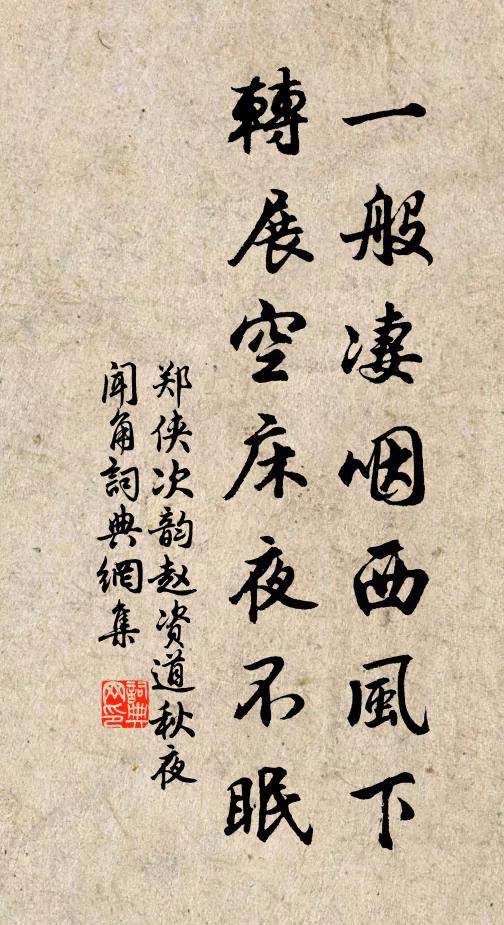 一般凄咽西風下
轉展空床夜不眠
郑侠次韵赵资道秋夜
闻角詞典網集
詞典
网印